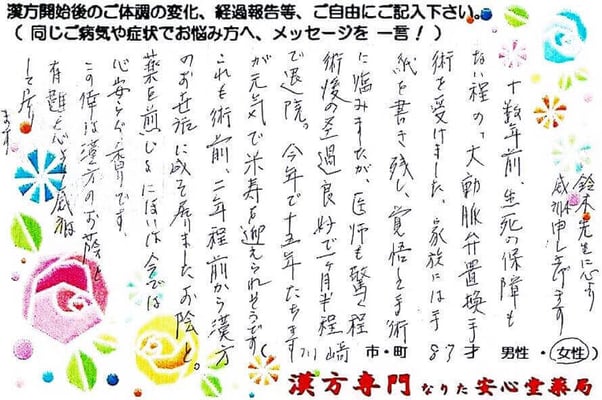 漢方開始後のご体調の変化、経過報告等、ご自由にご記入下さい。
（ 同じご病気や症状でお悩み方へ、メッセージを 一言！ ）
鈴木先生に心より
感謝申し上げます
十数年前、生死の保障も
ない程の、大動脈弁置換手
術を受けました。家族には手
紙を書き残し、覚悟して手術
に臨みましたが、医師も驚く程
術後の経過良好で一ヶ月半程
で退院。今年で十五年たちます
が元気で米寿を迎えられそうです
これも術前、二年程前から漢方
のお世話に成って居りましたお陰と。
薬を煎じるにほいは今では
心安らぐ香りです
この倖は漢方のお蔭と
有難く心より感謝
して居り
ます
（ 川崎 市・町 87才 男性・女性）
漢方専門 なりた 安心堂薬局